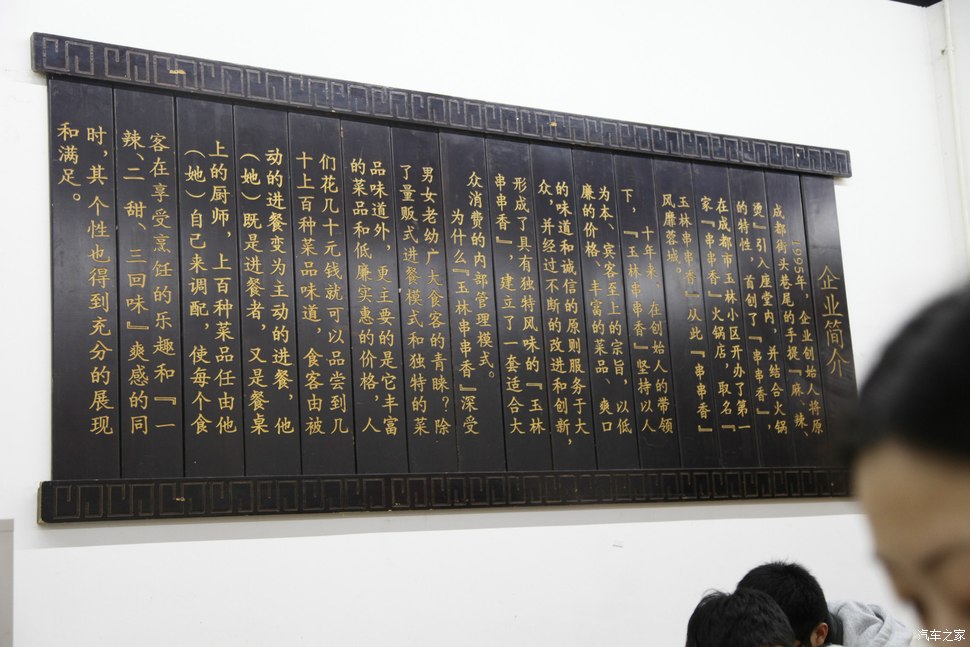 企业简介
1995年，企业创始人将原
成都街头巷尾的手提『麻、辣、
烫』引入座堂内，并结合火锅
的特性，首创了『串串香』，
在成都市玉林小区开办了第一
家『串串香』火锅店，取名『
玉林串串香』从此『串串香』
风靡蓉城。
十年来，在创始人的带领
下，『玉林串串香』坚持以人
为本、宾客至上的宗旨，以低
廉的价格、丰富的菜品、爽口
的味道和诚信的原则服务于大
众，并经过不断的改进和创新，
形成了具有独特风味的『玉林
串串香』，建立了一套适合大
众消费的内部管理模式。
为什么『玉林串串香』深受
男女老幼广大食客的青睐？除
了量贩式进餐模式和独特的菜
品味道外，更主要的是它丰富
的菜品和低廉实惠的价格，人
们花几十元钱就可以品尝到几
十上百种菜品味道，食客由被
动的进餐变为主动的进餐，他
（她）既是进餐者，又是餐桌
上的厨师，上百种菜品任由他
（她）自己来调配，使每个食
客在享受烹饪的乐趣和『一
辣、二甜、三回味』爽感的同
时，其个性也得到充分的展现
和满足。
汽车之家